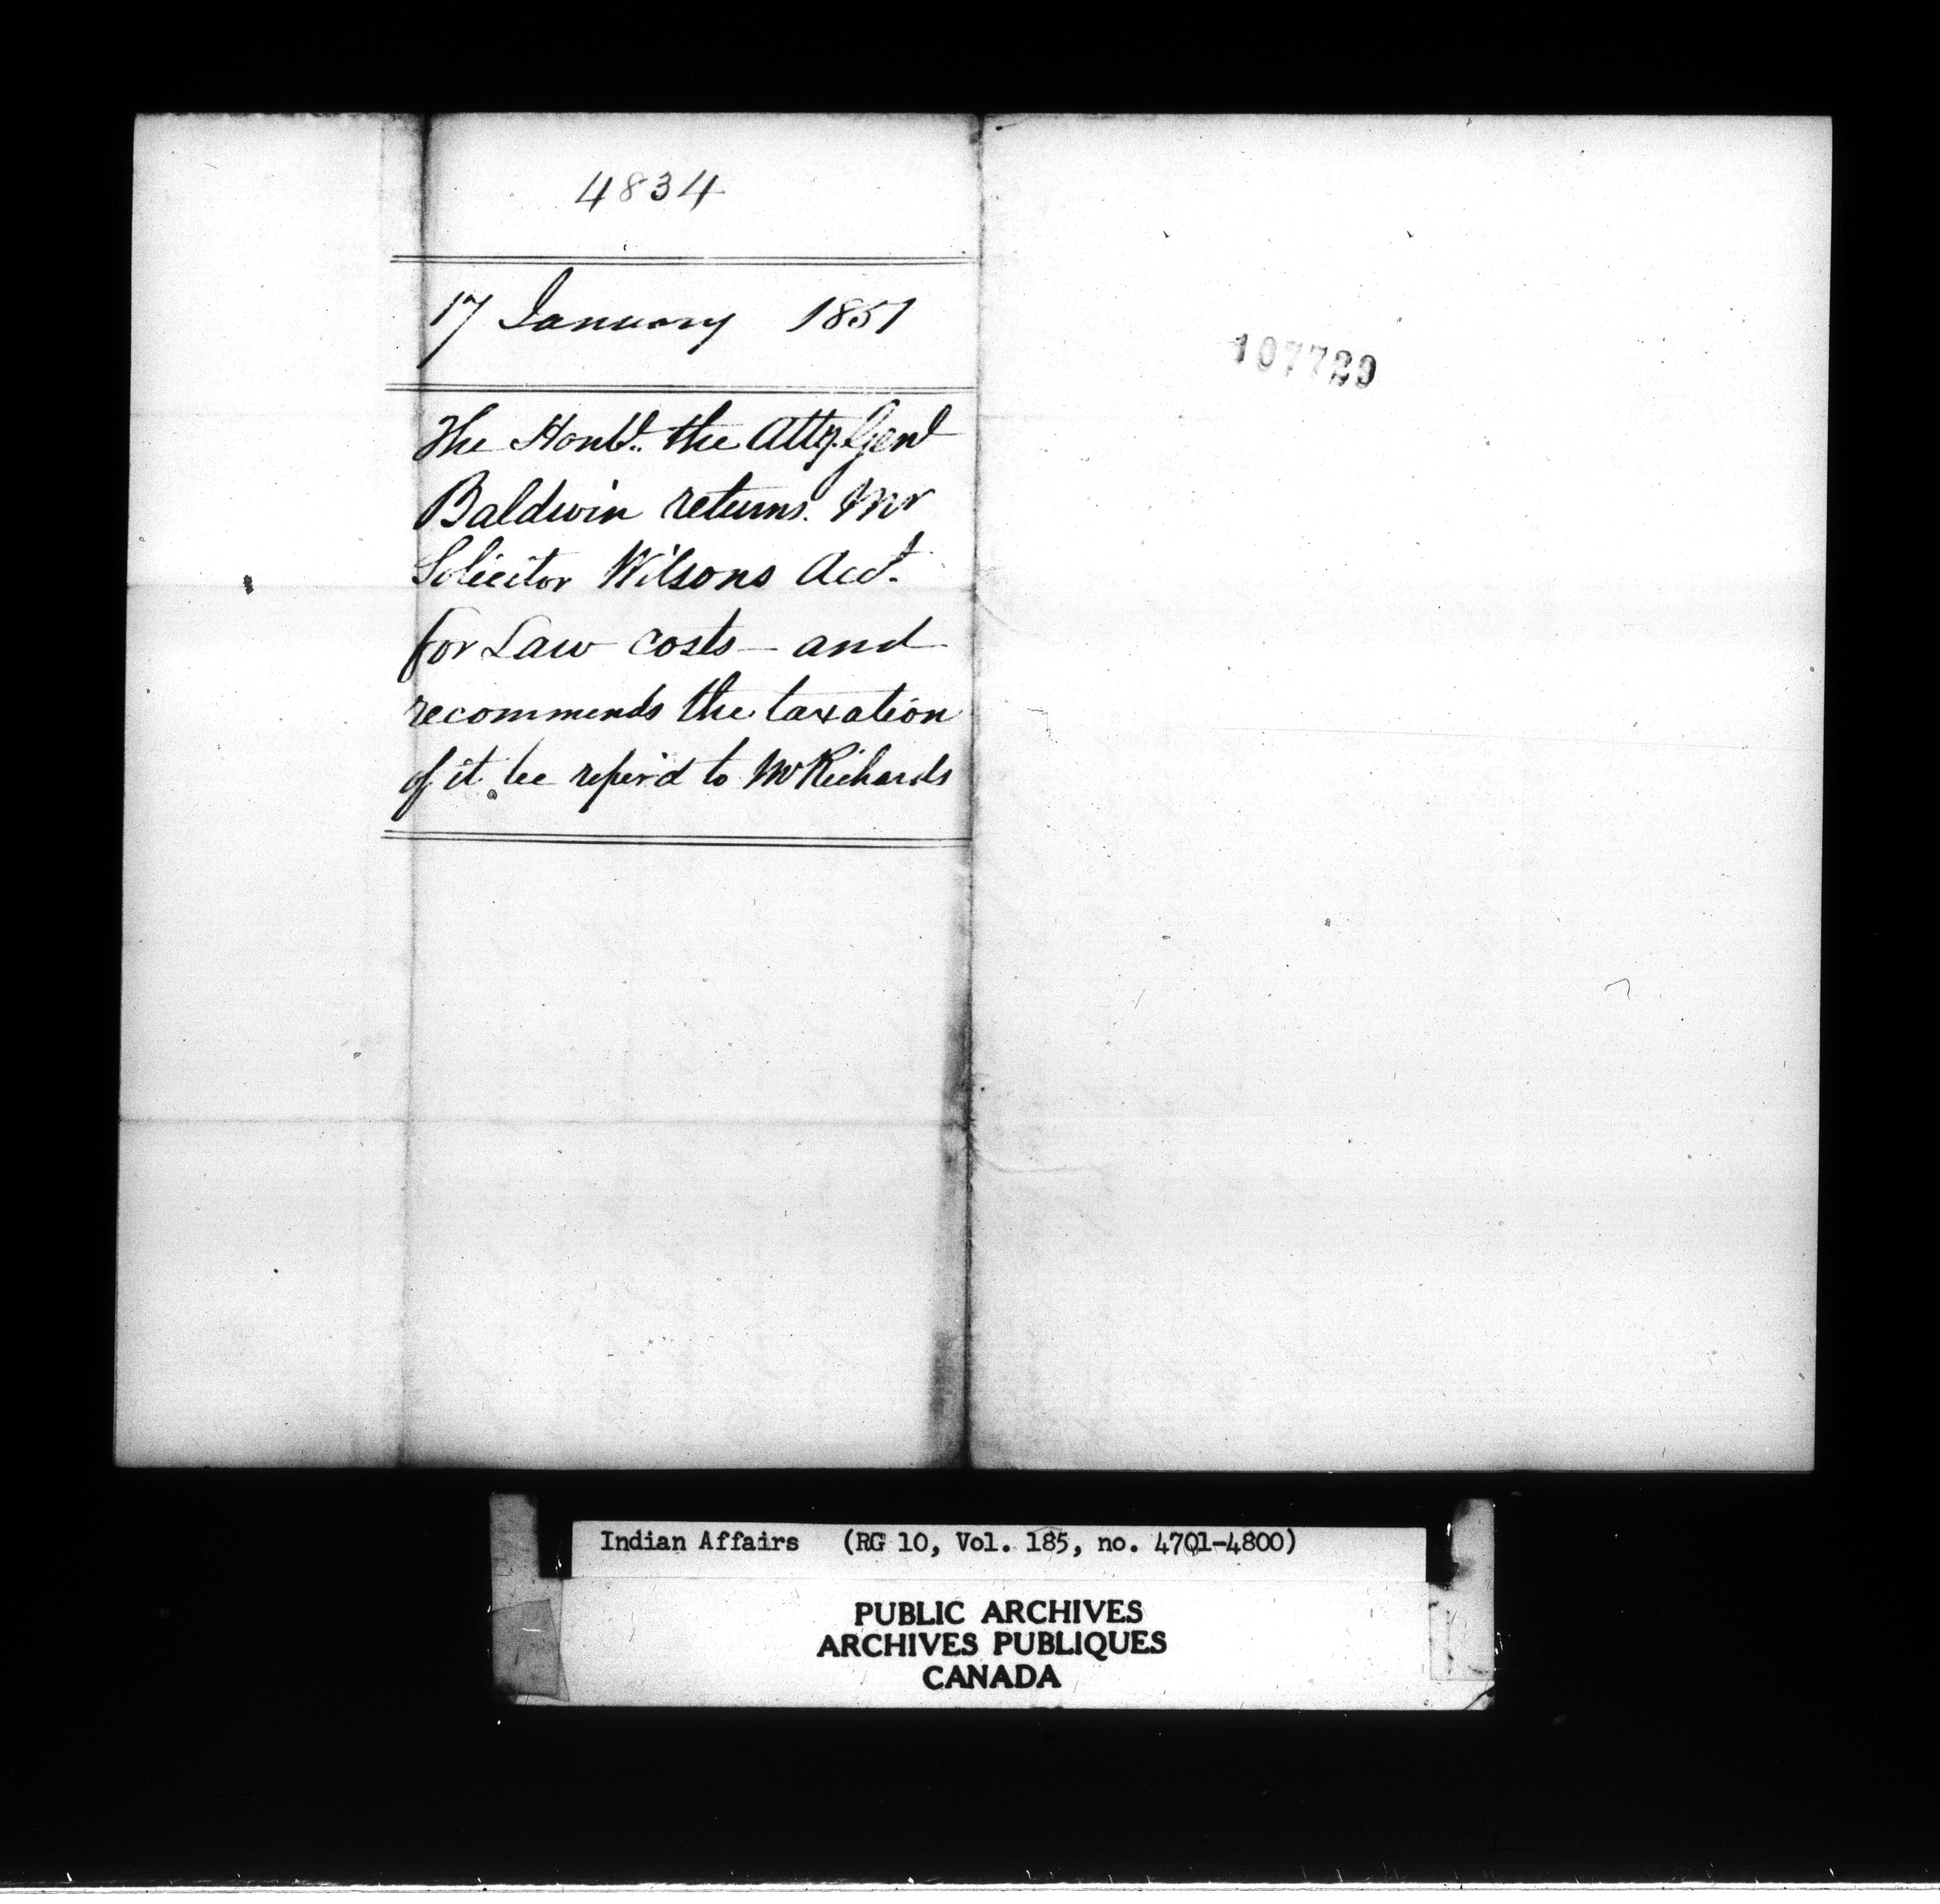 4834
17 January 1851
The Honbl. the Atty. Genl
Baldwin returns Mr
Solicitor Wilsons Acct.
for Law costs — and
recommends the taxation
of it be refer'd to Mr Richards
107729
Indian Affairs (RG 10, Vol. 185, no. 4701-4800)
PUBLIC ARCHIVES
ARCHIVES PUBLIQUES
CANADA